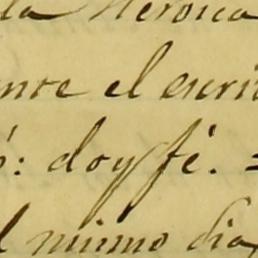 la Heroica
ente el escri
ó: doy fé. =
l mismo dia